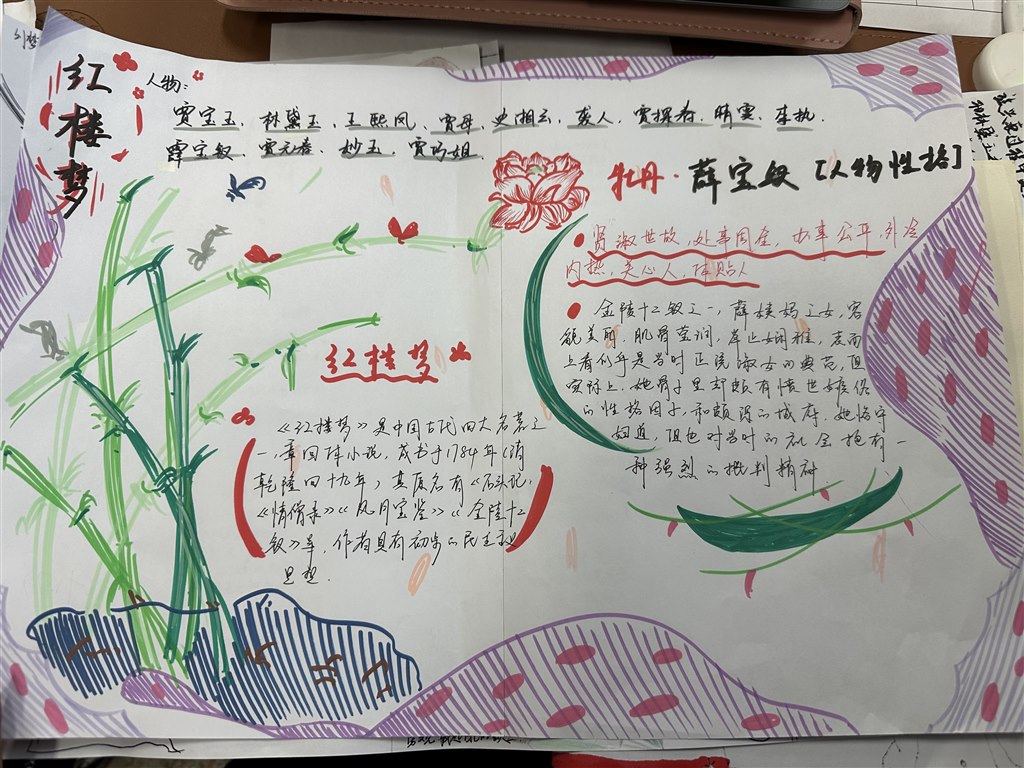 红楼梦
人物:
贾宝玉、林黛玉、王熙凤、贾母、史湘云、袭人、贾探春、晴雯、李纨.
薛宝钗、贾元春、妙玉、贾巧姐.
牡丹·薛宝钗[人物性格]
贤淑世故,处事周全,办事公平,外冷
内热,关心人,体贴人
金陵十二钗之一,薛姨妈之女,容
貌美丽,肌骨莹润,举止娴雅,表面
上看似乎是当时正统淑女的典范,但
实际上,她骨子里却颇有愤世嫉俗
的性格因子和颇深的城府,她恪守
妇道,但也对当时的社会抱有一
种强烈的批判精神
红楼梦
《红楼梦》是中国古代四大名著之
一,章回体小说,成书于1784年(清
乾隆四十九年),其原名有《石头记》
《情僧录》《风月宝鉴》《金陵十二
钗》等,作者具有初步的民主主义
思想.